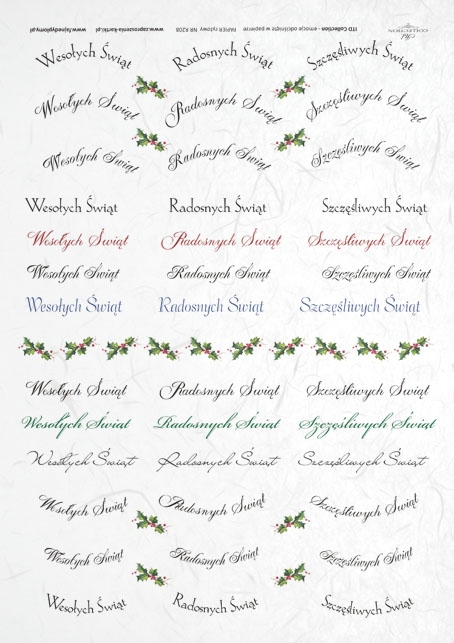 ITD Collection - emocje odciśnięte w papierze PAPIER ryżowy NR R208 www.zaproszenia-kartki.pl www.fajnedyplomy.pl
ITD COLLECTION
Wesołych Świąt Radosnych Świąt Szczęśliwych Świąt
Wesołych Świąt Radosnych Świąt Szczęśliwych Świąt
Wesołych Świąt Radosnych Świąt Szczęśliwych Świąt
Wesołych Świąt Radosnych Świąt Szczęśliwych Świąt
Wesołych Świąt Radosnych Świąt Szczęśliwych Świąt
Wesołych Świąt Radosnych Świąt Szczęśliwych Świąt
Wesołych Świąt Radosnych Świąt Szczęśliwych Świąt
Wesołych Świąt Radosnych Świąt Szczęśliwych Świąt
Wesołych Świąt Radosnych Świąt Szczęśliwych Świąt
Wesołych Świąt Radosnych Świąt Szczęśliwych Świąt
Wesołych Świąt Radosnych Świąt Szczęśliwych Świąt
Wesołych Świąt Radosnych Świąt Szczęśliwych Świąt
Wesołych Świąt Radosnych Świąt Szczęśliwych Świąt